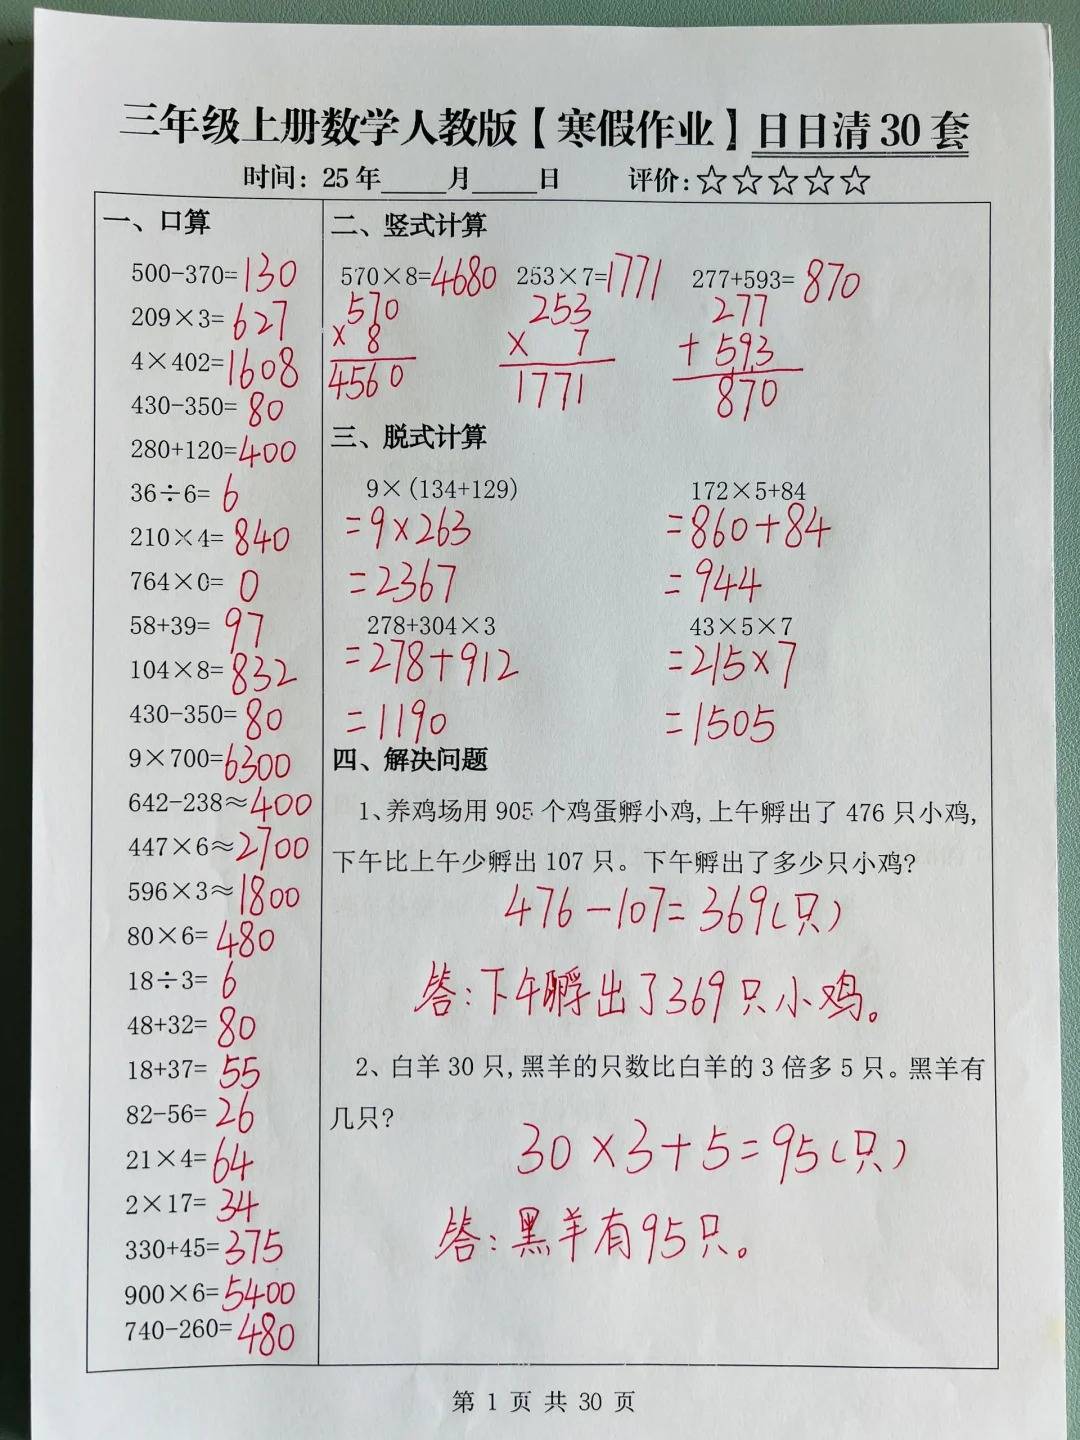 三年级上册数学人教版【寒假作业】日日清30套
时间：25年_____月_____日 评价:☆☆☆☆☆
一、口算
500-370=130
209×3=627
4×402=1608
430-350=80
280+120=400
36÷6=6
210×4=840
764×0=0
58+39=97
104×8=832
430-350=80
9×700=6300
642-238≈400
447×6≈2700
596×3≈1800
80×6=480
18÷3=6
48+32=80
18+37=55
82-56=26
21×4=64
2×17=34
330+45=375
900×6=5400
740-260=480
二、竖式计算
570×8=4680 253×7=1771 277+593=870
570 253 277
× 8 × 7 + 593
4560 1771 870
三、脱式计算
9×(134+129) 172×5+84
=9×263 =860+84
=2367 =944
278+304×3 43×5×7
=278+912 =215×7
=1190 =1505
四、解决问题
1、养鸡场用905个鸡蛋孵小鸡,上午孵出了476只小鸡,
下午比上午少孵出107只。下午孵出了多少只小鸡?
476-107=369(只)
答:下午孵出了369只小鸡。
2、白羊30只,黑羊的只数比白羊的3倍多5只。黑羊有
几只?
30×3+5=95(只)
答:黑羊有95只。
第 1 页 共 30 页